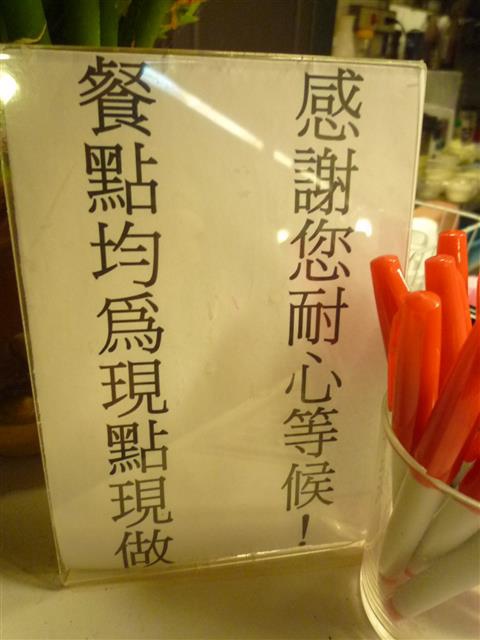 感謝您耐心等候！
餐點均為現點現做